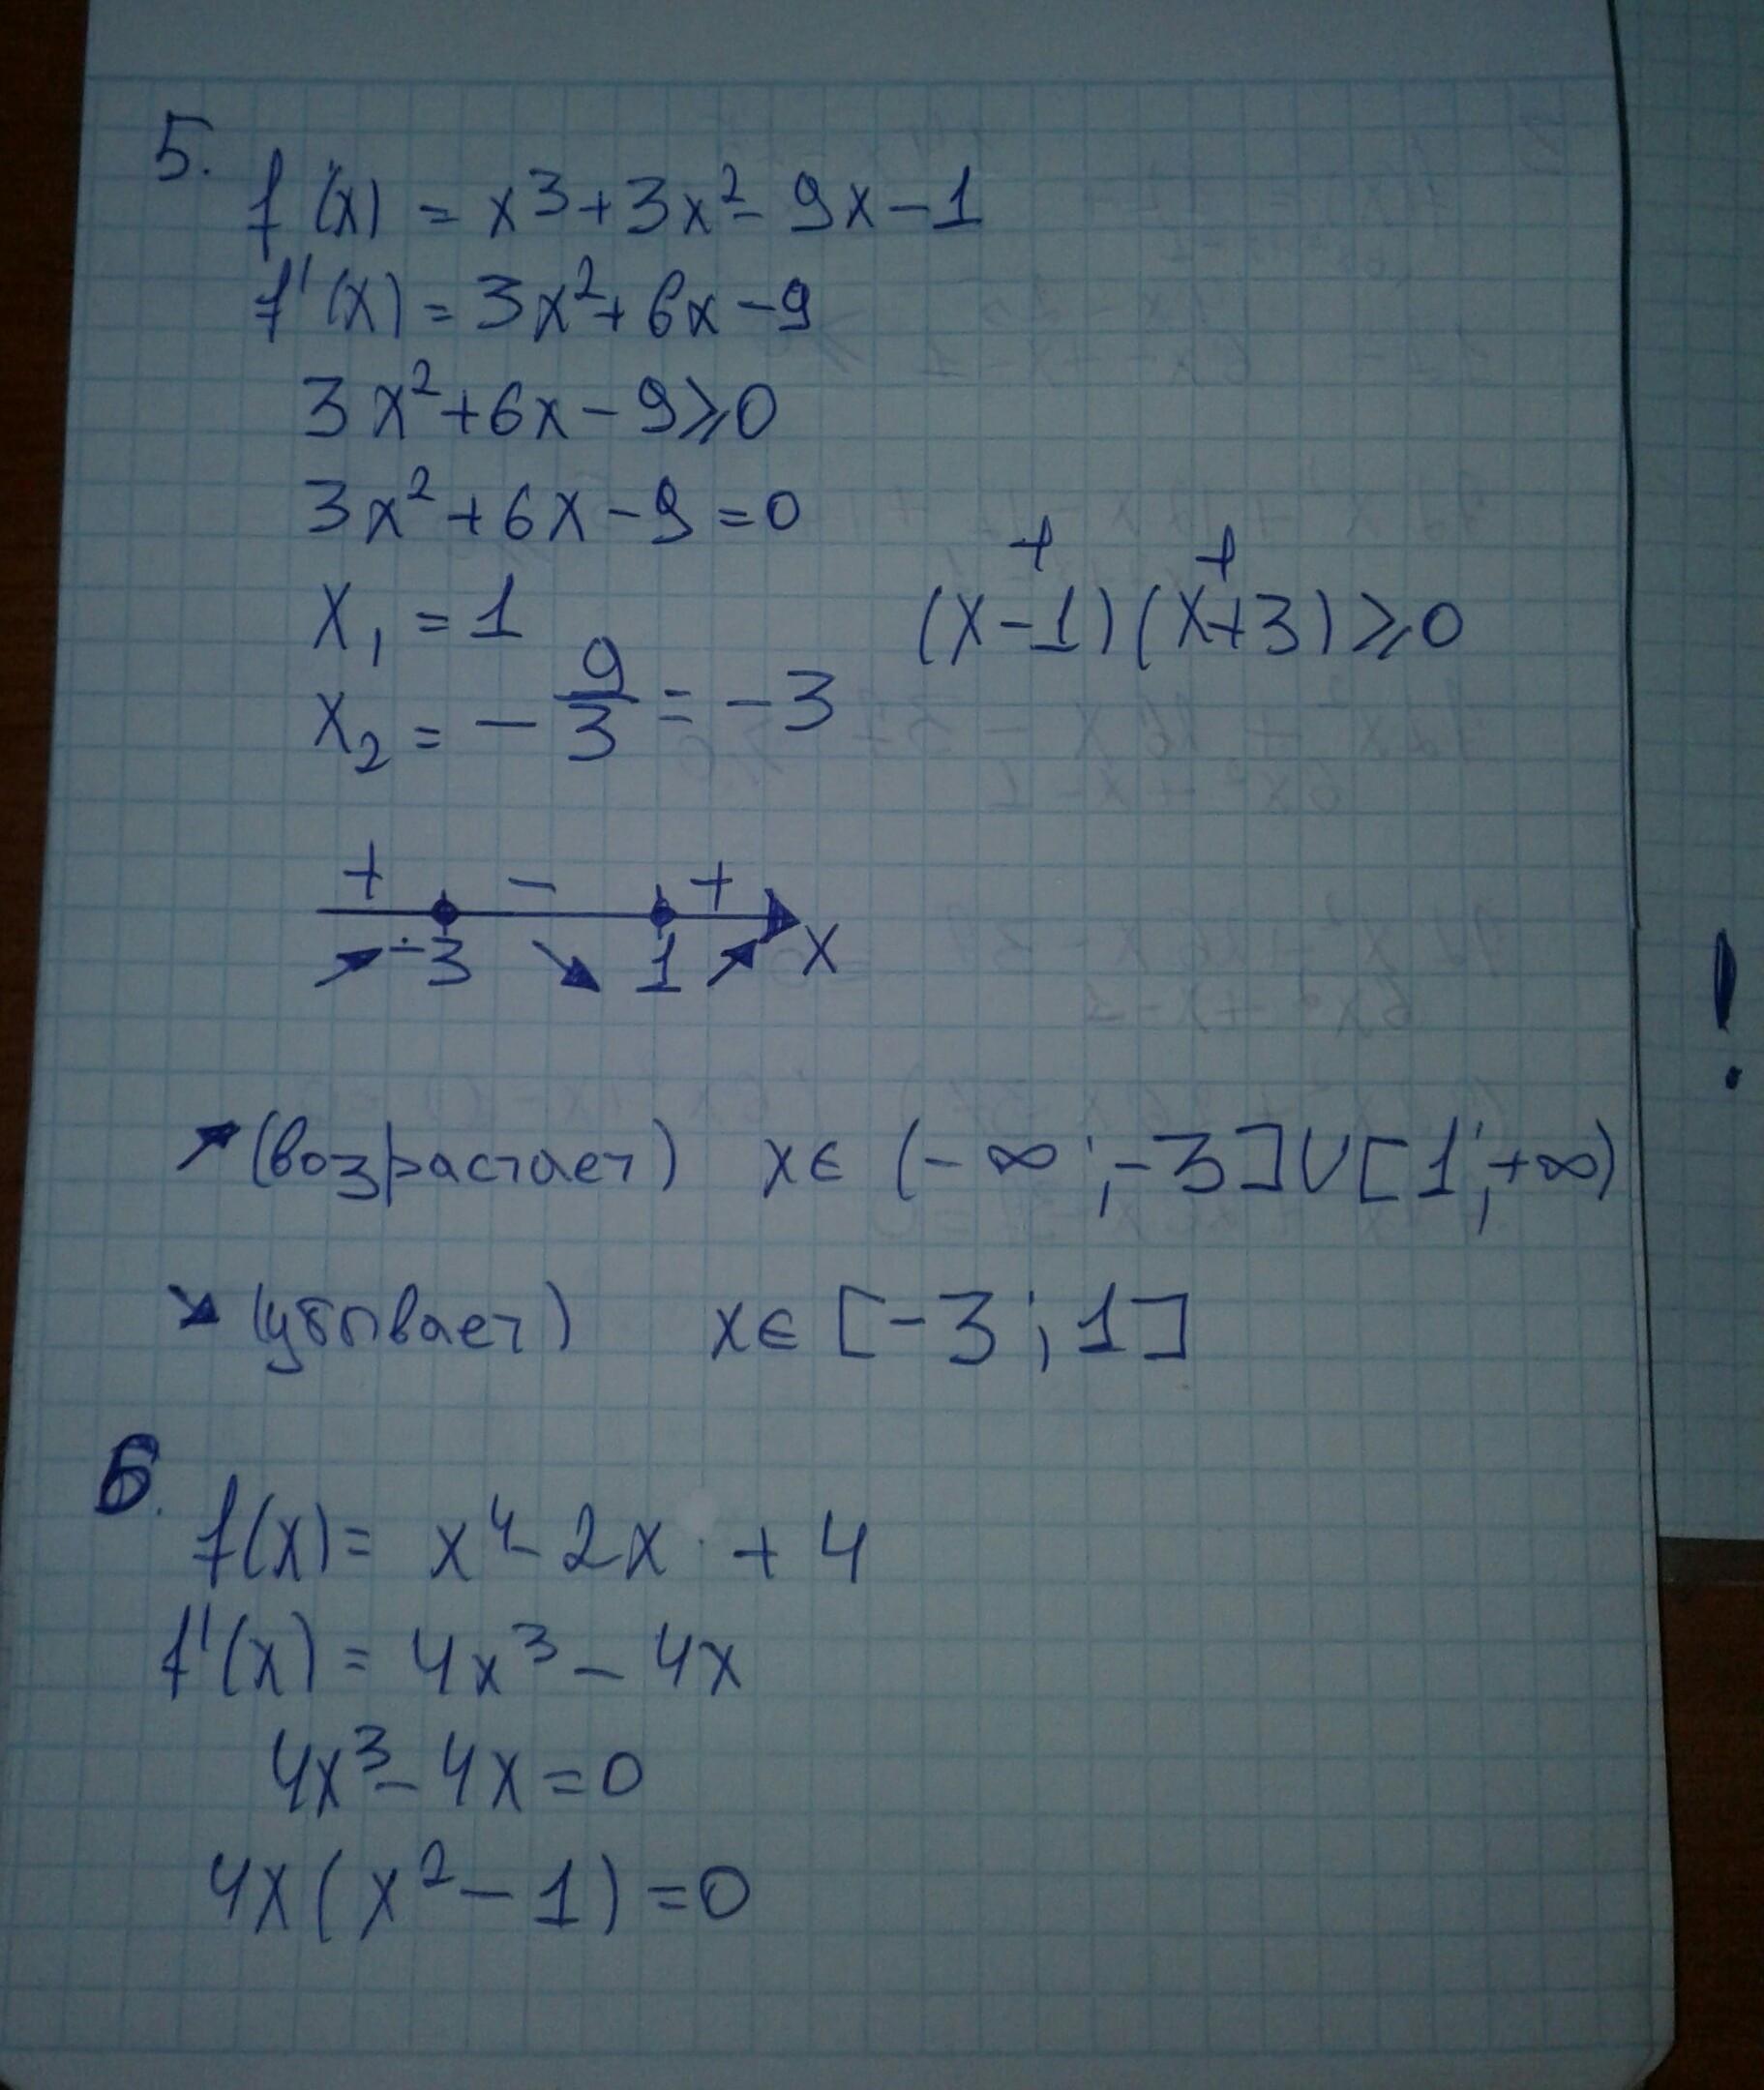 5.
f(x) = x³+3x²-9x-1
f'(x) = 3x²+6x-9
3x²+6x-9⩾0
3x²+6x-9=0
+ +
x₁ = 1 (x-1)(x+3)⩾0
x₂ = -9/3 = -3
+ - +
-3 1 x
↗ (возрастает) x∈ (-∞;-3]∪[1;+∞)
↘ (убывает) x∈ [-3;1]
6.
f(x) = x⁴-2x + 4
f'(x) = 4x³-4x
4x³-4x=0
4x(x²-1)=0
!